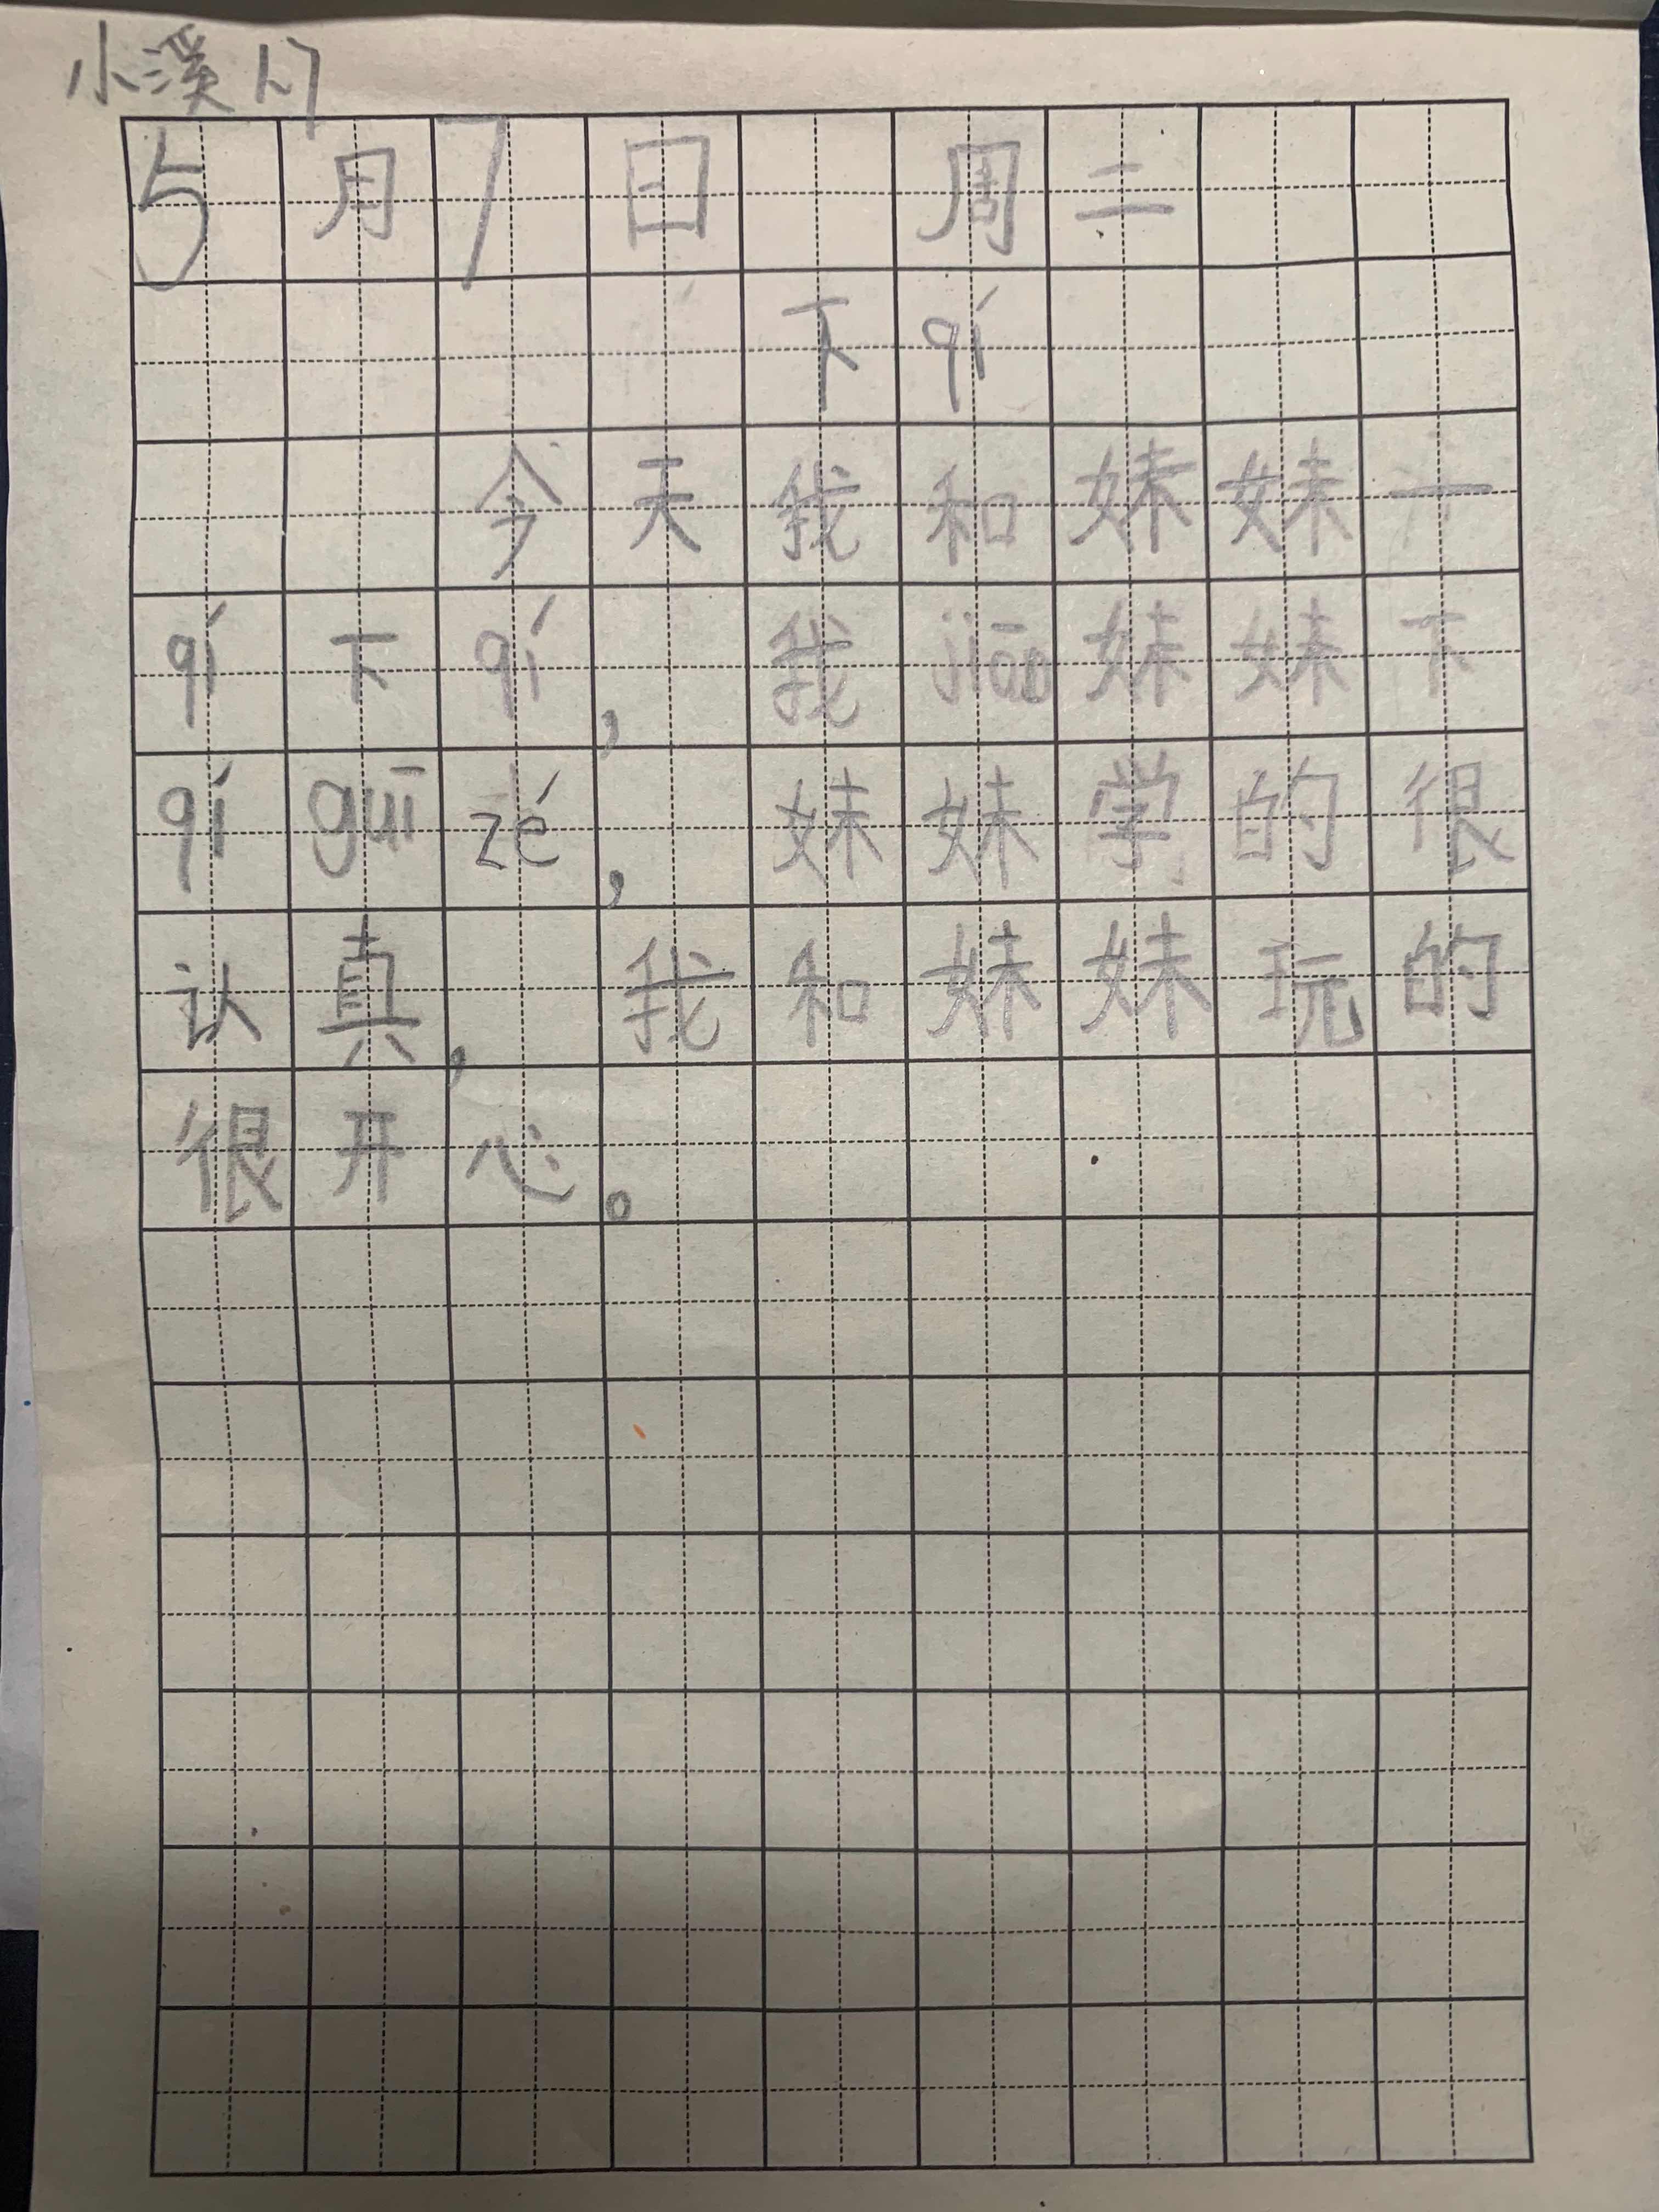 小溪17
5月7日 周二
下qí
今天我和妹妹一
qí下qí，我jiāo妹妹下
qí guī zé，妹妹学的很
认真，我和妹妹玩的
很开心。